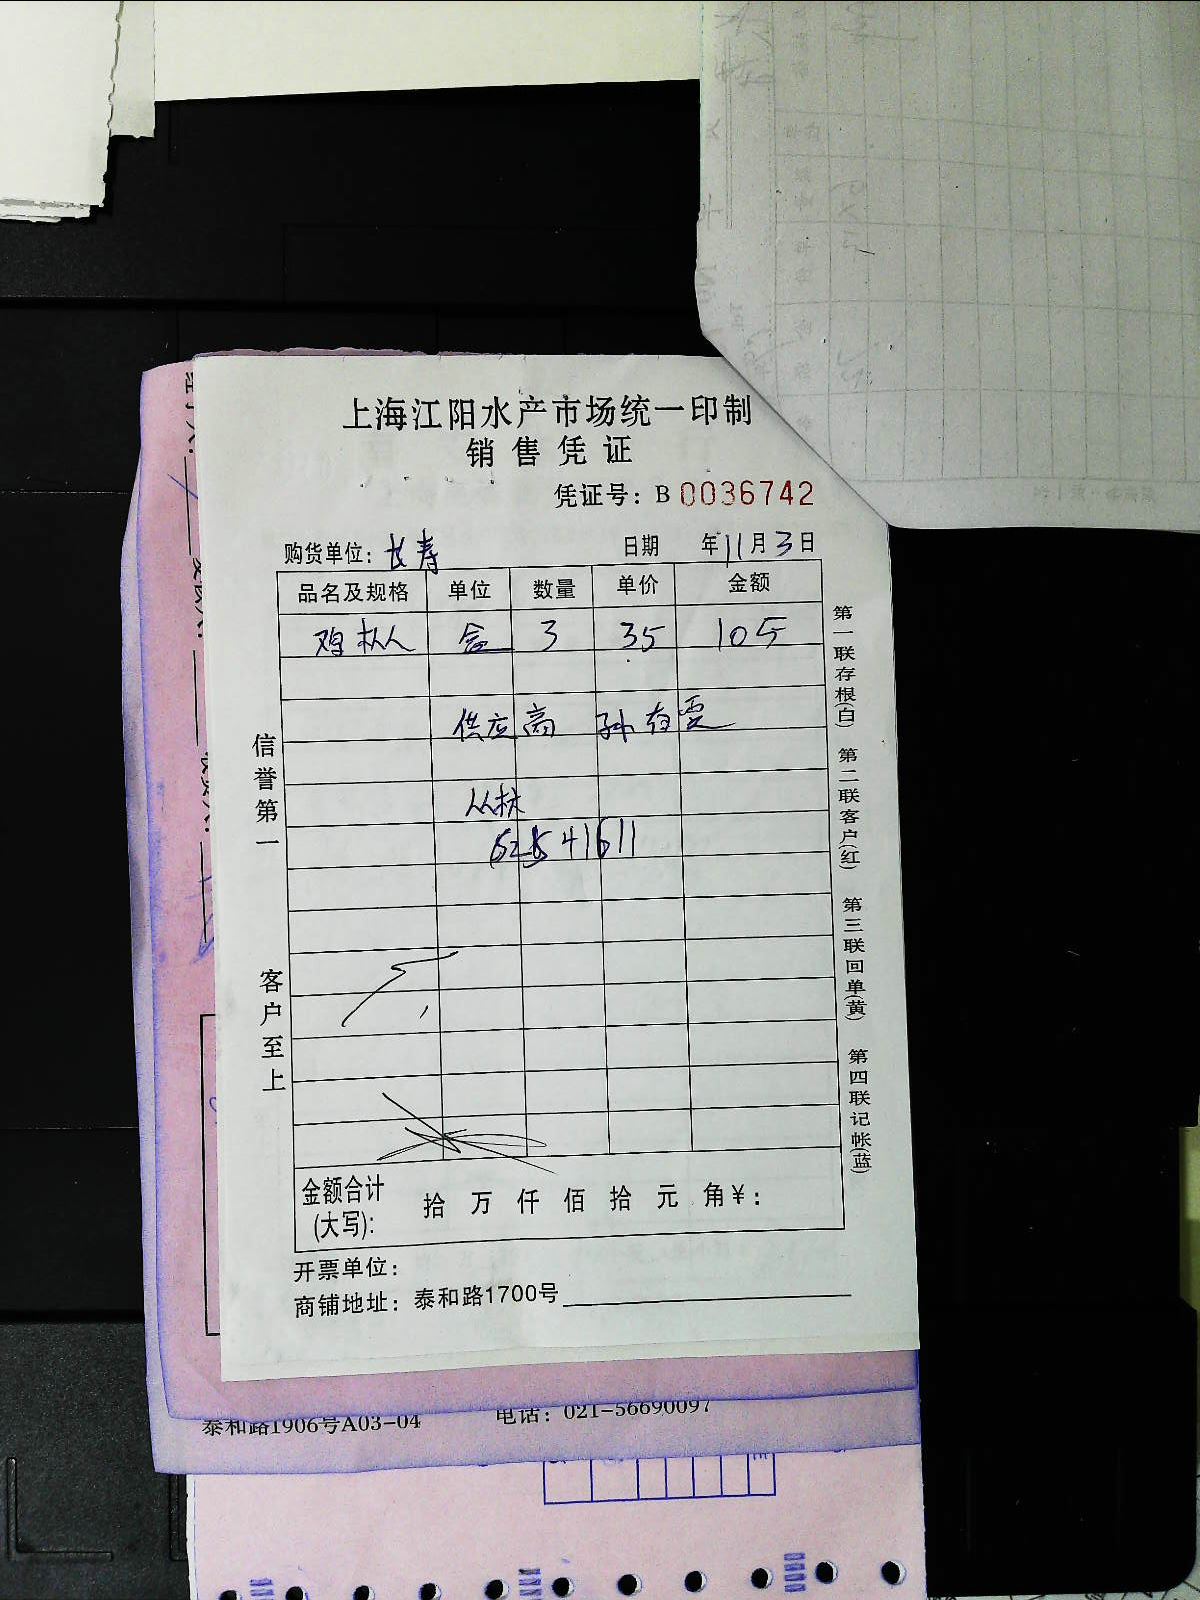 上海江阳水产市场统一印制
销售凭证
凭证号：B 0036742
购货单位：长寿 日期 年11月3日
品名及规格 单位 数量 单价 金额
鸡枞人 盒 3 35 105
供应商 孙有
丛林
62541611
信誉第一
客户至上
第一联存根(白) 第二联客户(红) 第三联回单(黄) 第四联记帐(蓝)
金额合计(大写)： 拾 万 仟 佰 拾 元 角￥：
开票单位：
商铺地址：泰和路1700号
泰和路1906号A03-04 电话：021-56690097